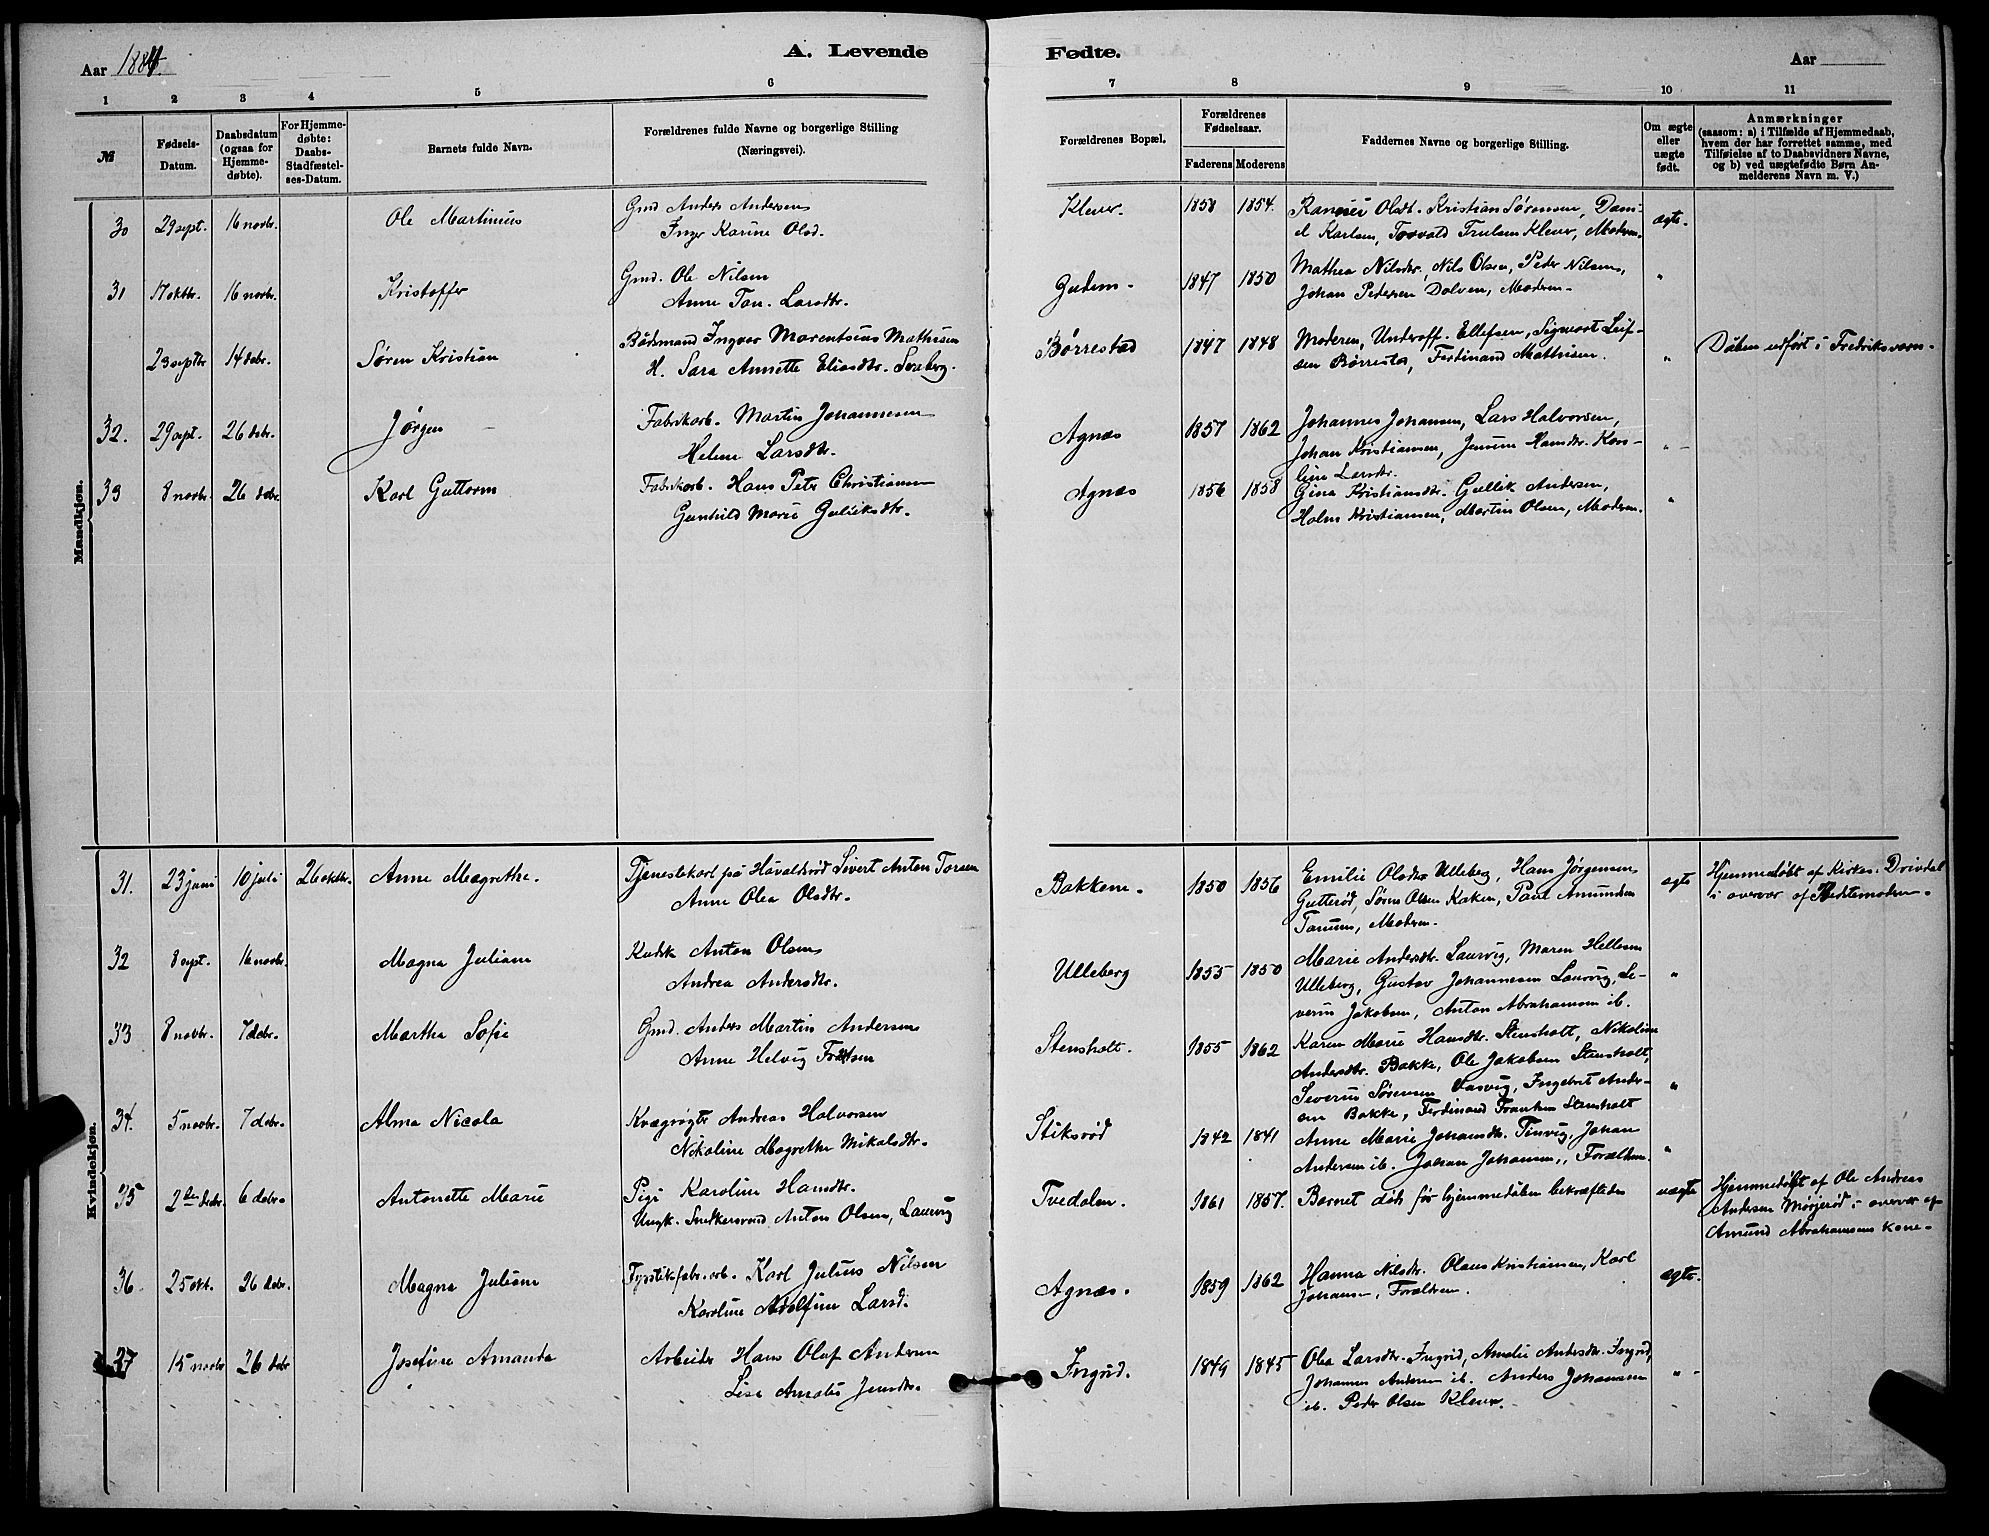 Aar 1884.
A. Levende
Fødte.
Aar
1 2 3 4 5 6 7 8 9 10 11
№
Fødsels-
Datum.
Daabsdatum
(ogsaa for
Hjemme-
døbte).
For Hjemme-
døbte:
Daabs-
Stadfæstel-
ses-Datum.
Barnets fulde Navn.
Forældrenes fulde Navne og borgerlige Stilling
(Næringsvei).
Forældrenes Bopæl.
Forældrenes
Fødselsaar.
Faderens Moderens
Faddernes Navne og borgerlige Stilling.
Om ægte
eller
uægte
født.
Anmærkninger
(saasom: a) i Tilfælde af Hjemmedaab,
hvem der har forrettet samme, med
Tilføielse af to Daabsvidners Navne,
og b) ved uægtefødte Børn An-
melderens Navn m. V.)
Mandkjøn.
30 29 sept. 16 novbr. Ole Martinius Gmd Anders Andersen Klever. 1858 1854. Olsdt. Kristian Sørensen, Dani-
Inger Karine Olsd. el Karlsen, Torvald Trulsen Klever, Moderen. ægte.
31 17 oktbr. 16 novbr. Kristoffer Gmd. Ole Nilsen Gudem. 1847 1850 Mathea Nilsdtr, Nils Olsen, Peder Nilsen, "
Anne Tan. Larsdtr. Johan Pedersen Dolven, Moderen.
23 septbr 14 debr. Søren Kristian Bådsmand Ingvar Marentsius Mathisen Børrestad 1847 1848 Moderen, Underoff. Ellefsen, Sigwart Leif-
H. Sara Annette Eliasdtr. sen Børrestad, Ferdinand Mathisen. " Dåben udført i Fredriksværn.
32. 29 sept. 26 debr. Jørgen Fabrikarb. Martin Johannesen Agnæs 1857 1862 Johannes Johansen, Lars Halvorsen,
Helene Larsdtr. Johan Kristiansen, Hansdtr. Karo- "
line Larsdtr.
33 8 novbr. 26 debr. Karl Guttorm Fabrikarb. Hans Peter Christiansen Agnæs 1856 1858 Gina Kristiansdtr. Gullik Andersen,
Gunhild Marie Gulliksdtr. Holm Kristiansen, Martin Olsen, Moderen. "
Kvindekjøn.
31. 23 juni 10 juli 26 oktbr. Anne Magrethe. Tjenestekarl på Håvaldsrød Sivert Anton Torsen Bakkene. 1850 1856 Emilie Olsdtr Ulleberg, Hans Jørgensen ægte Hjemmedøbt af Kirkes. Drivdal
Anne Olea Olsdtr. Gutterød, Søren Olsen Bakken, Paul Amundsen i overvær af Bedstemoderen.
Tanum, Moderen.
32 8 sept. 16 novbr. Magna Juliane Kudsk Anton Olsen Ulleberg 1855 1850 Marie Andersdtr. Laurvig, Maren Hellesen
Andrea Andersdtr. Ulleberg, Gustav Johannesen Laurvig, Se- "
verin Jakobsen, Anton Abrahamsen ib.
33 8 novbr. 7 debr. Martha Sofie Gmd. Anders Martin Andersen Stensholt. 1855 1862 Karen Marie Hansdtr. Stensholt, Nikoline
Anne Helvig Andersdtr. Bakke, Ole Jakobsen Stensholt,
Severin Sørensen Vasvig, Ingebret Ander- "
sen Bakke, Ferdinand Frantsen Stensholt
34. 5 novbr. 7 debr. Alma Nicola Kvægrøgter Andreas Halvorsen Stiksrød 1842 1841 Anne Marie Johansdtr. Tinvig, Johan
Nikoline Magrethe Mikalsdtr. Andersen ib. Johan Johansen, Forældrene. "
35 2den debr. 6 debr. Antonette Marie Pige Karoline Hansdtr. Tvedalen. 1861 1857. Barnet døde før hjemmedåben bekræftedes uægte Hjemmedøbt af Ole Andreas
Ungk. Snedkersvend Anton Olsen, Laurvig Andersen Mørjerød i overvær af
Amund Abrahamsens kone.
36 25 okt. 26 debr. Magna Juliane Fyrstikfabr.arb. Karl Julius Nilsen Agnæs. 1859 1862 Hanna Nilsdtr. Olaus Kristiansen, Karl ægte.
Karoline Adolfine Larsd. Johansen, Forældrene.
37 15 novbr 26 debr Josefine Amanda Arbeider Hans Olaf Andersen Ingrid. 1849 1845 Olea Larsdtr. Ingrid, Amalie Andersdtr. Ingrid,
Lise Amalie Jensdtr. Johannes Andersen ib. Anders Johansen "
ib. Peder Olsen Klever.